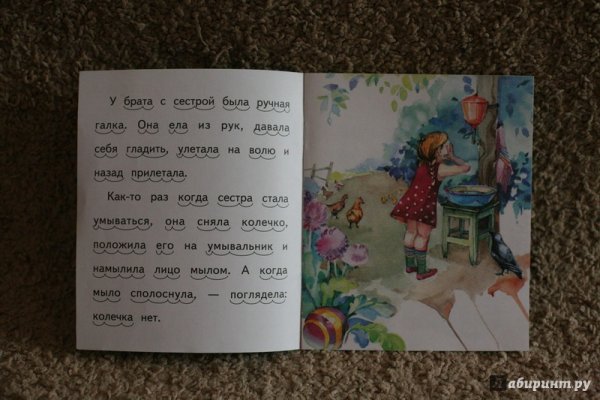 У брата с сестрой была ручная
галка. Она ела из рук, давала
себя гладить, улетала на волю и
назад прилетала.
Как-то раз когда сестра стала
умываться, она сняла колечко,
положила его на умывальник и
намылила лицо мылом. А когда
мыло сполоснула, — поглядела:
колечка нет.
Лабиринт.ру